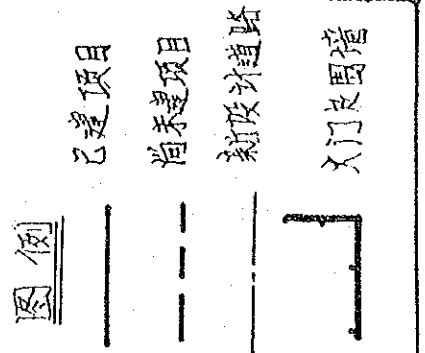 图例
已建项目
尚未建项目
新设计道路
大门及围墙